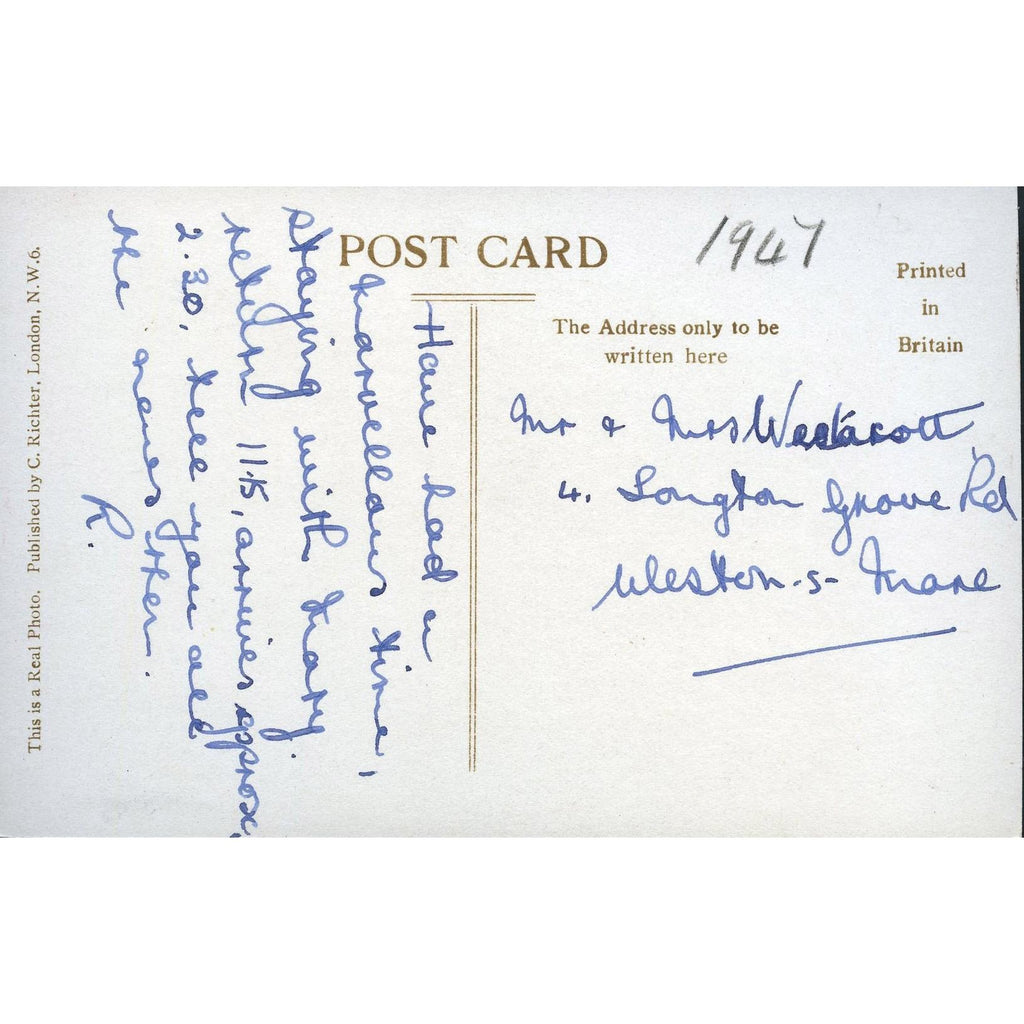 POST CARD
1947
Printed
in
Britain
The Address only to be
written here
Mr & Mrs Westacott
4. Longton Grove Rd
Weston-s-Mare
Have had a
marvellous time,
staying with Mary.
return 11.15, arrives approx,
2.30, tell you all
the news then.
R.
This is a Real Photo. Published by C. Richter, London, N.W.6.